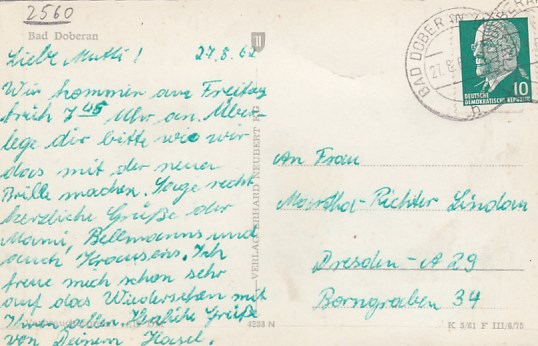 2560
Bad Doberan
Liebe Mutti! 27.8.62
Wir kommen am Freitag
früh 7 45 Uhr an. Über-
lege dir bitte wie wir
das mit der neuen
Brille machen. Sage recht
herzliche Grüße der
Mami, Bellmanns und
auch Krausens. Ich
freue mich schon sehr
auf das Wiedersehen mit
Ihnen allen. Herzliche Grüße
von Deinem Hasel.
VERLAG ERHARD NEUBERT KG
4288 N
BAD DOBERAN
27.8.
DEUTSCHE
DEMOKRATISCHE REPUBLIK
10
An Frau
Martha-Richter Lindau
Dresden-A 29
Borngraben 34
K 3/61 F III/6/75